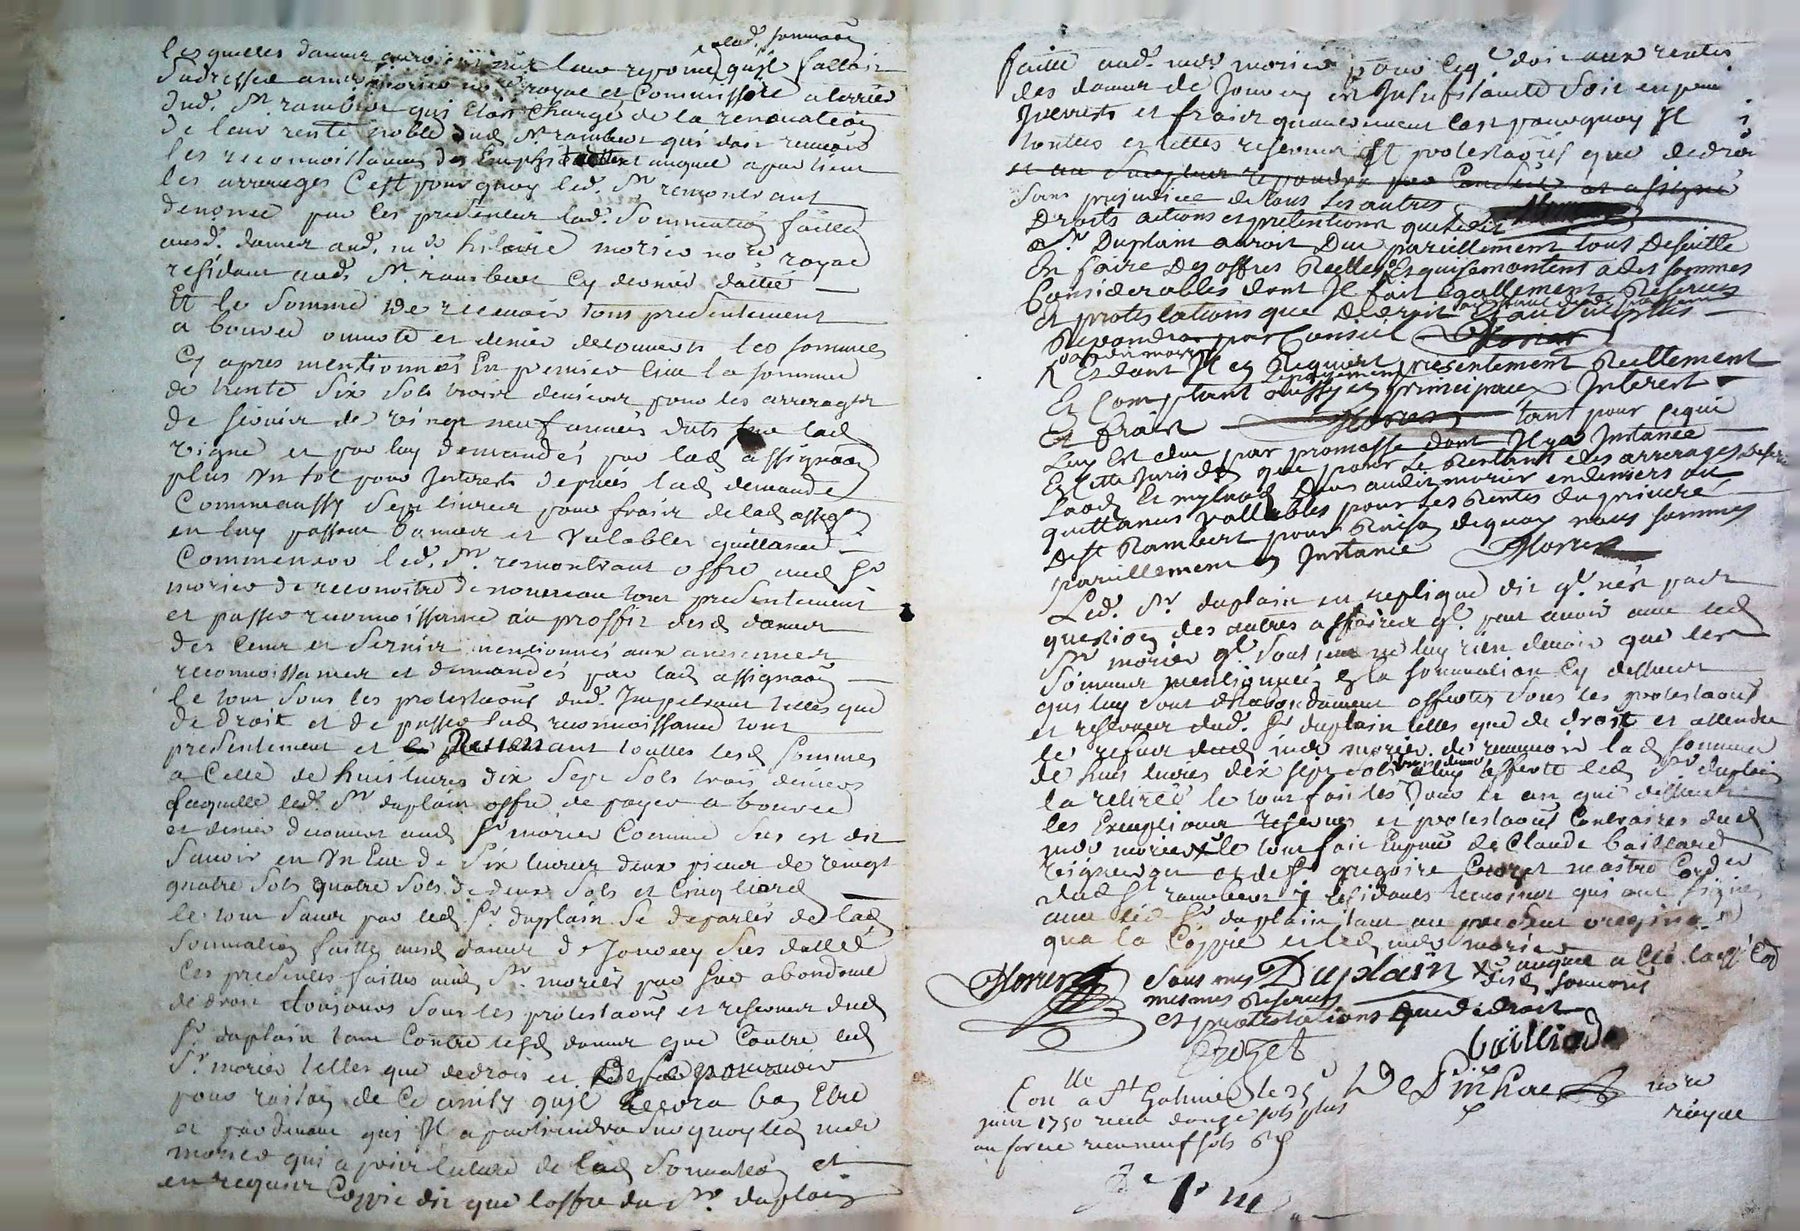 lesquelles dames auroient fait leur reponce a lad. sommaon qu'il falloit
s'adresser a me morier no.re royal et Commissre a terrier
dud. St rambert qui etoit chargé de la renovation
de leur rente noble dud. St rambert qui doit recevoir
les reconnoissances des Emphiteottes auquel apartient
les arrerages C'est pourquoy led. Sr. remontrant
denonce par les presentes lad. Sommation faitte
ausd. dames aud. me hilaire morier no.re royal
residant aud. St rambert Cy devant datté
Et le Somme De recevoir tout presentement
a bourse ouverte et denier decouverts les sommes
Cy apres mentionnées En premier lieu la somme
de trente Six Sols trois deniers pour les arrerages
de servis de vingt neuf années dûts sur lad.
vigne et par luy demandés par lad. assignaon
plus Un sol pour Interests depuis lad. demande
Comme aussy Sept livres pour frais de lad. assigon
en luy passant bonne et Valable quittance
Comme aussy led. Sr. remontrant offre aud. Sr
morier de reconnoitre de nouveau tout presentement
et passer reconnoissance au proffit desd. dames
des Cens et Servis mentionnés aux anciennes
reconnoissances et demandés par lad. assignaon
le tout sous les protestaons dud. Impetrant telles que
de droit et de passer lad. reconnoissance tout
presentement et Revenant touttes lesd. sommes
a Celle de huit livres dix Sept Sols trois deniers
laquelle led. Sr. duplain offre de payer a bourse
et denier decouvert aud. Sr morier Comme Sus est dit
Savoir en Un Ecu de Six livres deux pieces de vingt
quatre Sols quatre Sols de deux Sols et Cinq liard
le tout Sauf par led. Sr. duplain de departir de lad.
Sommation faitte ausd. dames de Jourcey Sus dattée
Ces presentes faittes aud. Sr. morier par Sur abondance
de droit toujours Sous les protestaons et reserves dud.
Sr. duplain tant Contre lesd. dames que Contre led.
Sr. morier telles que de droit et De Se pourvoir
pour raison de Ce ainsy qu'il verra bon Etre
et par devant qui Il apartiendra Sur quoy led. me
morier qui a pris lecture de lad. Sommation et
en requis Coppie dit que l'offre du Sr. duplain
faitte aud. me. morier pour Ce ql. doit aux rentes
des dames de Jourcey est Insufisante Soit en prin
Interests et frais
toutes et telles reserves Et protestaons que de droit
et au Surplus repondre par Conseil et a signé
Sans prejudice de tous les autres
Droits actions et pretentions que ledit
Sr. Duplain auroit Du pareillement tout De suitte
En faire Des offres Reelles Et qui se montent a des sommes
Considerables dont Il fait egallement Reserves
Et protestations que De droit Et au Surplus
Repondra par Conseil Morier
Et dont Il En Requiert presentement Reellement
Et Comptant aussy en principaux Interest
Et frais Morier tant pour Ce qui
Luy Est due par promesse dont Il y a Instance
En Cette Jurisdon que pour le Restant des arrerages
quittances vallables pour Les Rentes du prieuré
De St Rambert pour Raison de quoy nous sommes
pareillement En Instance Morier
Led. Sr. duplain en replique dit ql. n'est pas
question des autres affaires ql. peut avoir avec led.
Sr. morier ql. Soutient ne luy rien devoir que les
Sommes mentionnées En la Sommation Cy dessus
qui luy Sont d'abondament offertes Sous les protestaons
et reserves dud. Sr duplain telles que de droit et attendu
le refus dud. me morier de recevoir lad. somme
de huit livres dix sept sols trois deniers a luy offerte led. Sr duplain
la retirée le tout fait les Jour et an que dessus
les Exceptions reserves et protestaons Contraires dud.
me morier le tout fait En pnce de Claude baillard
vigneron et de Sr gregoire Crozet mastre Cordier
dud. St rambert y residants temoins qui ont signé
avec led. Sr. duplain tant au present original
qu'a la Coppie et led. me morier
Morier Sous mes Duplain auquel a Eté laissé Cop
mesmes Reserves desd. Sommaons
et protestations que de droit
Crozet bailliard
Conlle a St Galmier le 25 DePinhac no.re
juin 1750 recu douze sols plus royal
au foraie recu neuf sols 6 d